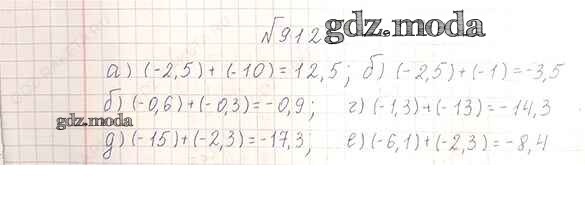 №912 gdz.moda
а) (-2,5)+(-10)=12,5; б) (-2,5)+(-1)=-3,5
б) (-0,6)+(-0,3)=-0,9; г) (-1,3)+(-13)=-14,3
gdz.moda
д) (-15)+(-2,3)=-17,3; е) (-6,1)+(-2,3)=-8,4